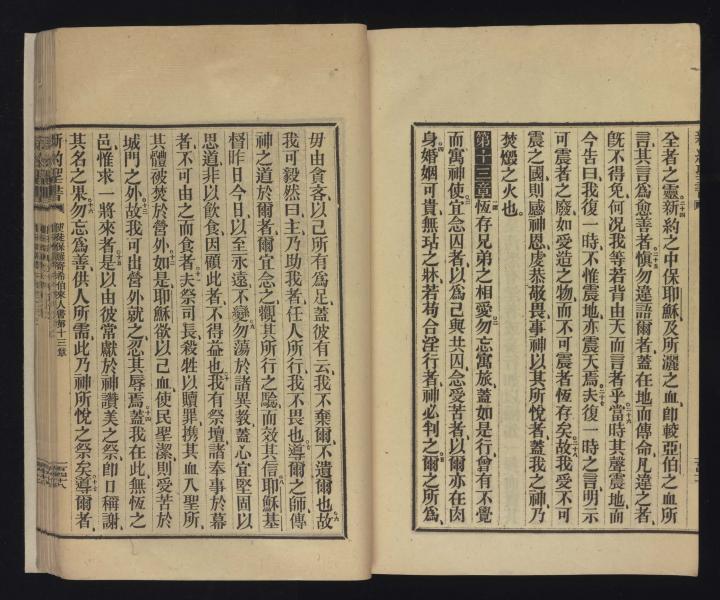 全者之靈二十四新約之中保耶穌及所灑之血卽較亞伯之血所
言其言爲愈善者二十五愼勿違語爾者蓋在地而傳命凡違之者
旣不得免何況我等若背由天而言者乎二十六當時其聲震地而
今告曰我復一時不惟震地亦震天焉二十七夫復一時之言明示
可震者之廢如受造之物而不可震者恆存矣二十八故我受不可
震之國則感神恩虔恭敬畏事神以其所悅者二十九蓋我之神乃
焚燬之火也
第十三章一恆存兄弟之相愛二勿忘寓旅蓋如是行曾有不覺
而寓神使三宜念囚者以爲己與共囚念受苦者以爾亦在肉
身四婚姻可貴無玷之牀若苟合淫行者神必判之五爾之所爲
毋由貪吝以己所有爲足蓋彼有云我不棄爾不遺爾也六故
我可毅然曰主乃助我者任人所行我不畏也七導爾之師傳
神之道於爾者爾宜念之觀其所行之驗而效其信八耶穌基
督昨日今日以至永遠不變九勿蕩於諸異教蓋心宜堅固以
恩道非以飲食因顧此者不得益也十我有祭壇諸奉事於幕
者不可由之而食十一夫祭司長殺牲以贖罪携其血入聖所
其體被焚於營外十二如是耶穌欲以己血使民聖潔則受苦於
城門之外十三故我可出營外就之忍其辱焉十四蓋我在此無恆之
邑惟求一將來者十五是以由彼常獻於神讚美之祭卽日稱謝
其名之果十六勿忘爲善供人所需此乃神所悅之祭矣十七導爾者
新約聖書 使徒保羅寄希伯來人書 第十三章